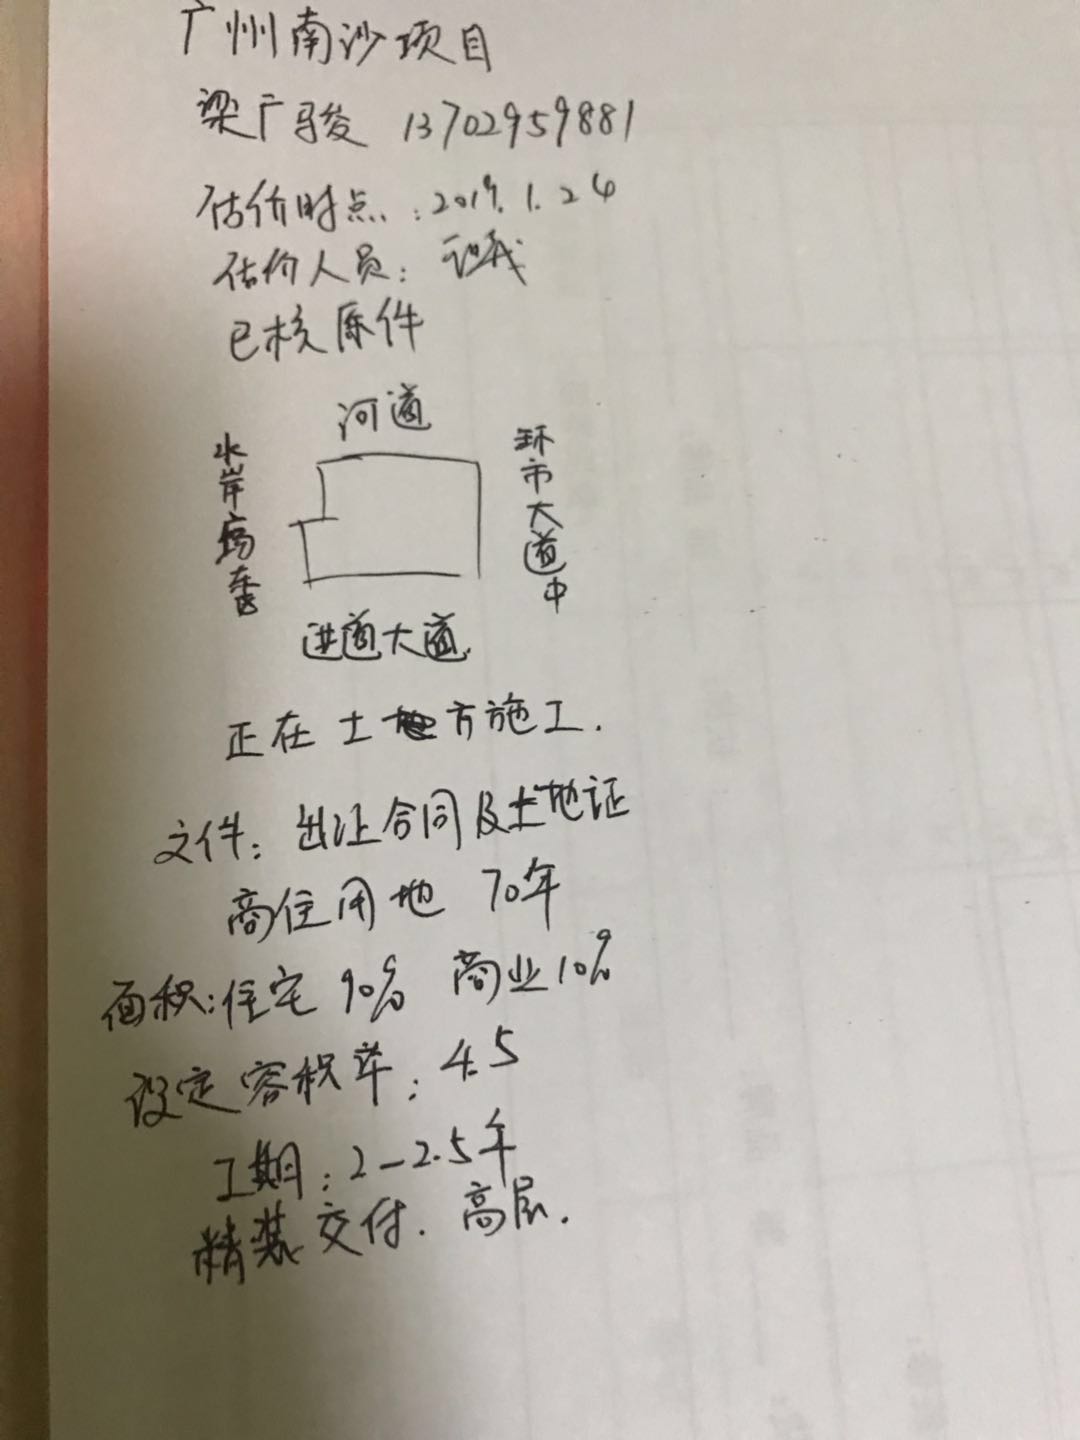 广州南沙项目
梁广骏 13702959881
估价时点：2019.1.24
估价人员：
已核原件
河道
水岸广场东区
环市大道中
进港大道
正在土方施工.
文件：出让合同及土地证
商住用地 70年
面积：住宅90% 商业10%
设定容积率：4.5
工期：2-2.5年
精装交付. 高层.